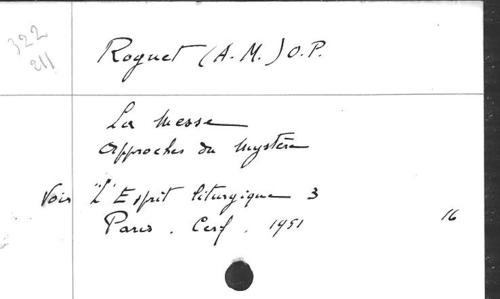 322
211
Roguet (A.M.) O.P.
La Messe
Approches du Mystère
Voir "L'Esprit liturgique 3
Paris. Cerf. 1951 16